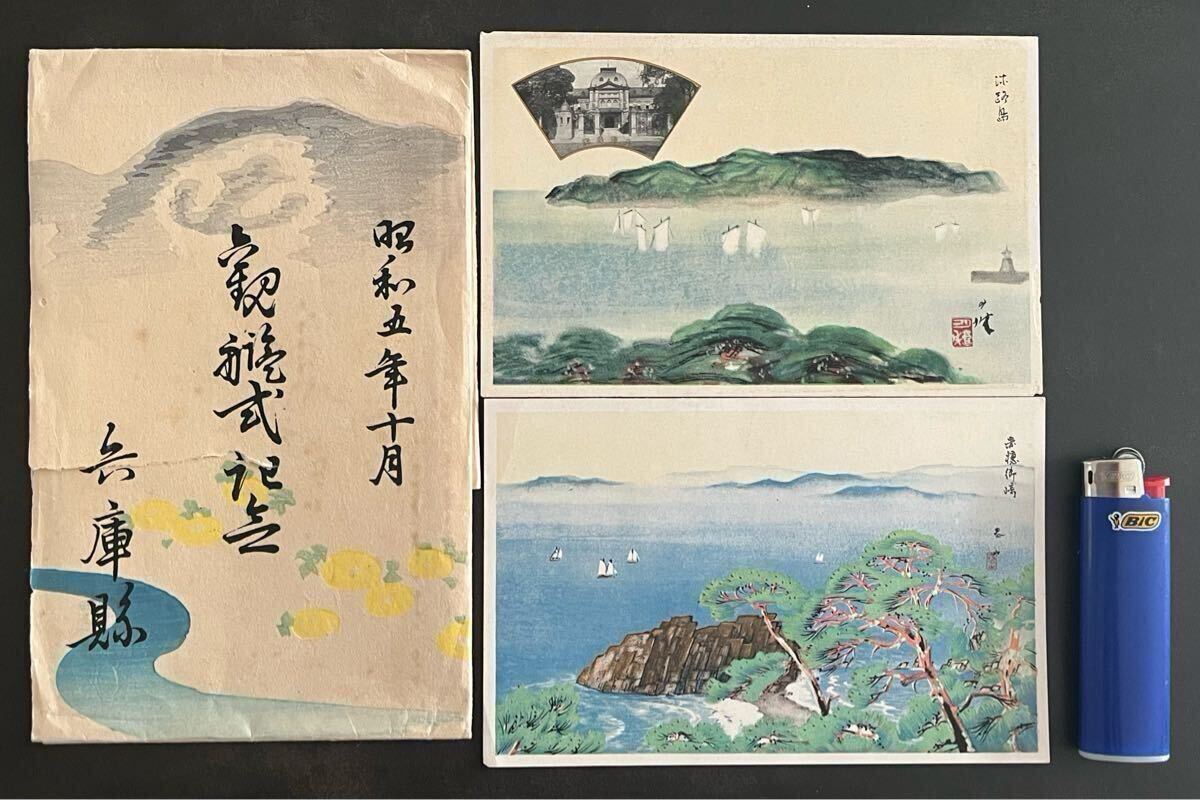 昭和五年十月
観艦式記念
兵庫縣
淡路島
赤穂御崎
BIC